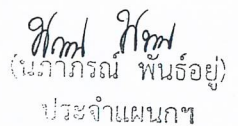 (นภาภรณ์ พันธ์อยู่)
ประจำแผนกฯ